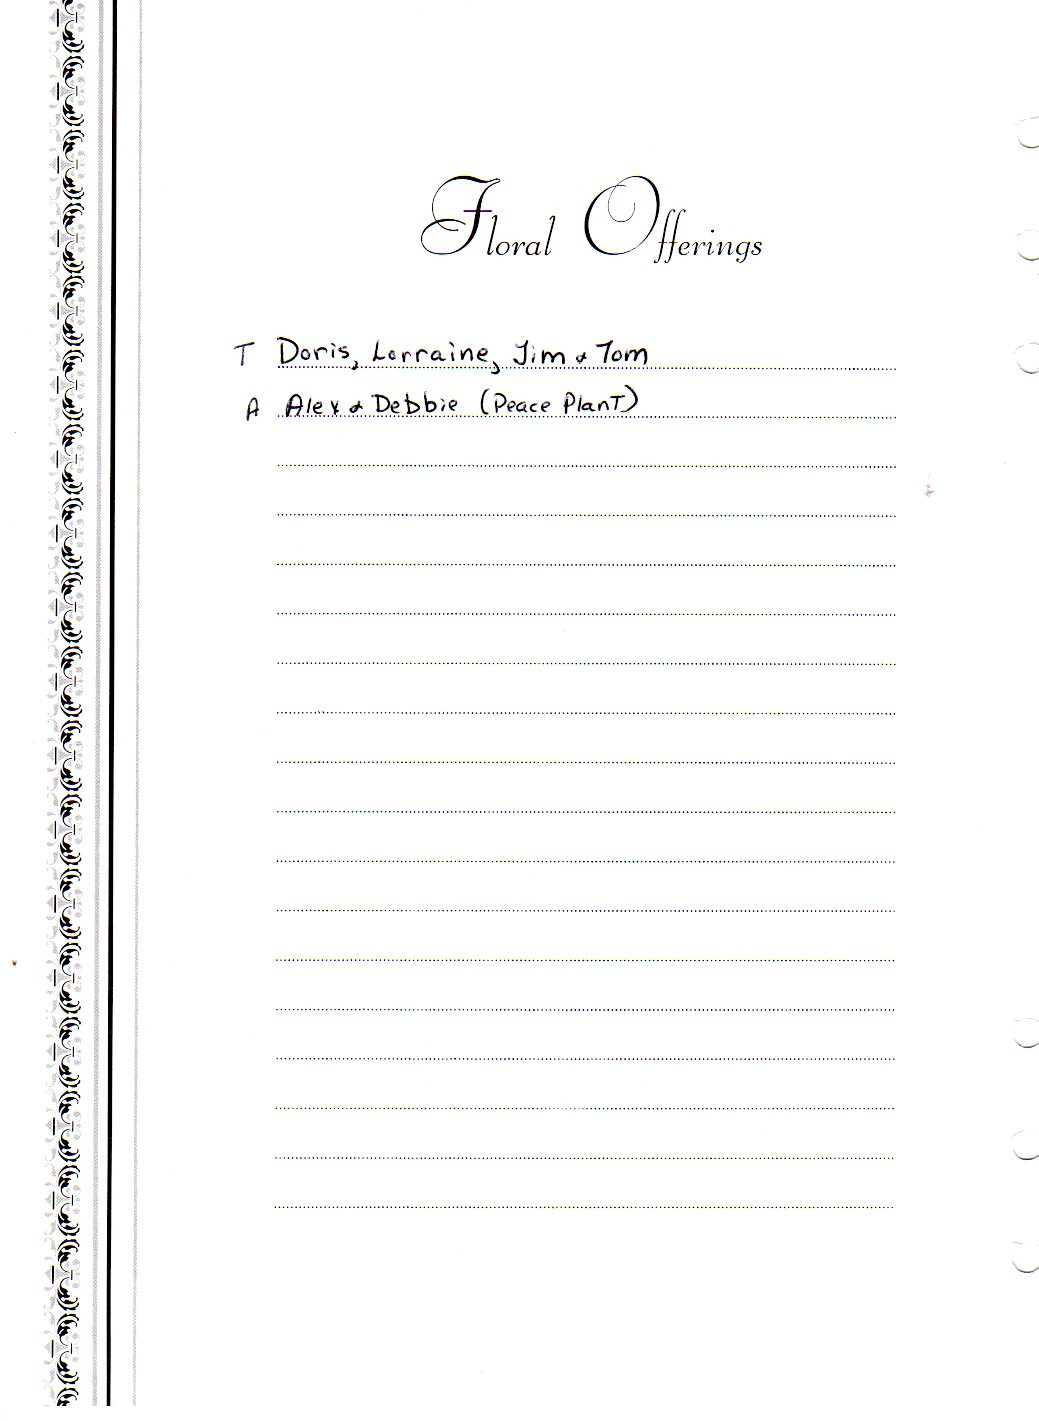 Floral Offerings
T Doris, Lorraine, Jim & Tom
A Alex & Debbie (Peace Plant)